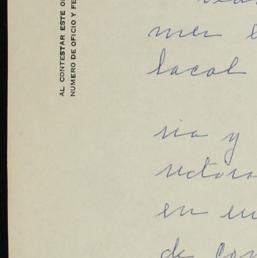 AL CONTESTAR ESTE O
NUMERO DE OFICIO Y FE
mer l
local
ria y
rectora
en en
de con